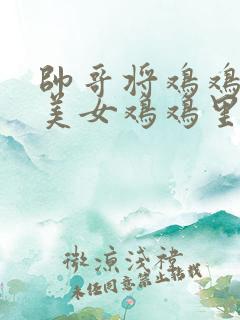 帥哥将鸡鸡
美女鸡鸡里
微凉浅襠
未经同意禁止转载